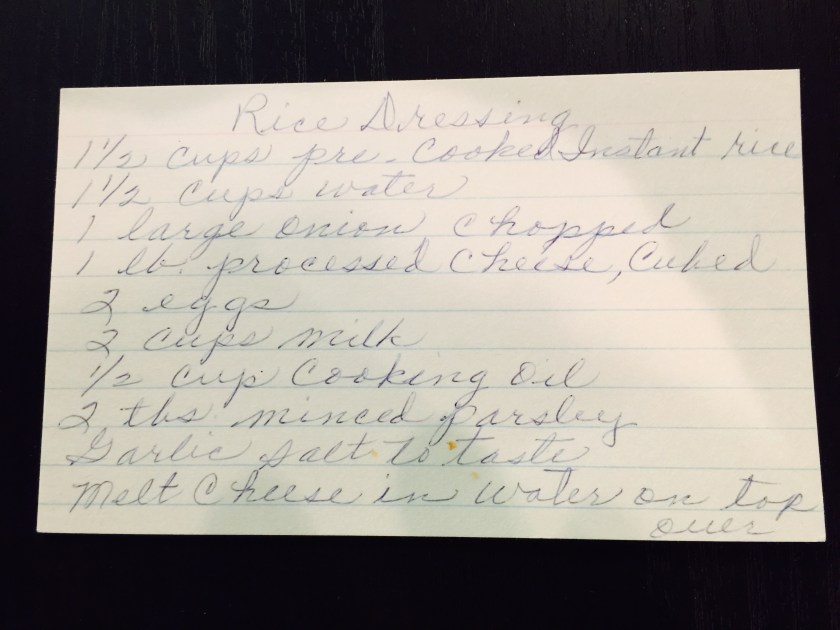 Rice Dressing
1 1/2 cups pre-cooked Instant rice
1 1/2 cups water
1 large onion chopped
1 lb. processed cheese, cubed
2 eggs
2 cups milk
1/2 cup cooking oil
2 tbs. minced parsley
Garlic salt to taste
Melt cheese in water on top
over